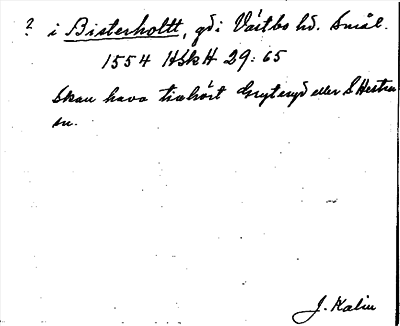 ? i Bisterholtt, gd i Västbo hd. Smål.
1554 HSkH 29:65
Skau hava tillhört Gryteryd eller S Hestra
sn.
J. Kalin